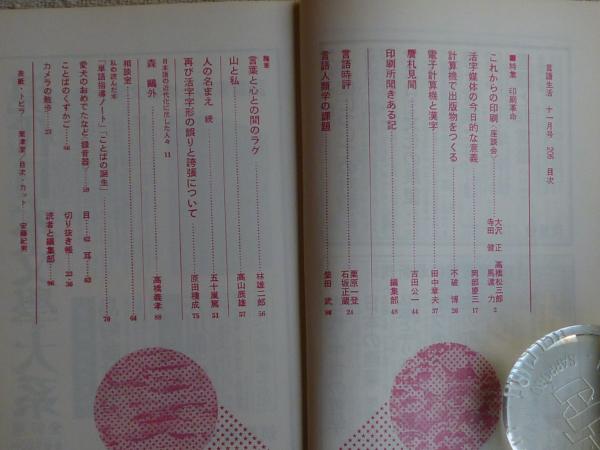 言語生活 十一月号 206 目次
■特集 印刷革命
これからの印刷〈座談会〉 大沢 正 高橋松三郎 寺田 健 馬渡 力 2
活字媒体の今日的な意義 岡部慶三 17
計算機で出版物をつくる 不破 博 26
電子計算機と漢字 田中章夫 37
贋札見聞 吉田公一 44
印刷所聞きある記 編集部 48
言語時評 栗原一登 石坂正蔵 24
言語人類学の課題 柴田 武
随筆
言葉と心との間のラグ 林雄二郎 56
山と私 高山辰雄 57
人の名まえ 続 五十嵐篤 51
再び活字字形の誤りと誇張について 原田種成 75
日本語の近代化に尽した人々 11
森 鷗外 高橋義孝 88
相談室 64
私の読んだ本
「単語指導ノート」「ことばの誕生」 70
愛犬のおめでたなど〈録音器〉 59 目 62 耳 63
ことばのくずかご 66 切り抜き帳
カメラの散歩 33 読者と編集部 96
表紙・トビラ 粟津潔/目次・カット 安藤紀男